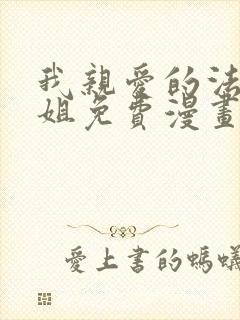 我親愛的法
姐免費漫畫
愛上書的螞蟻